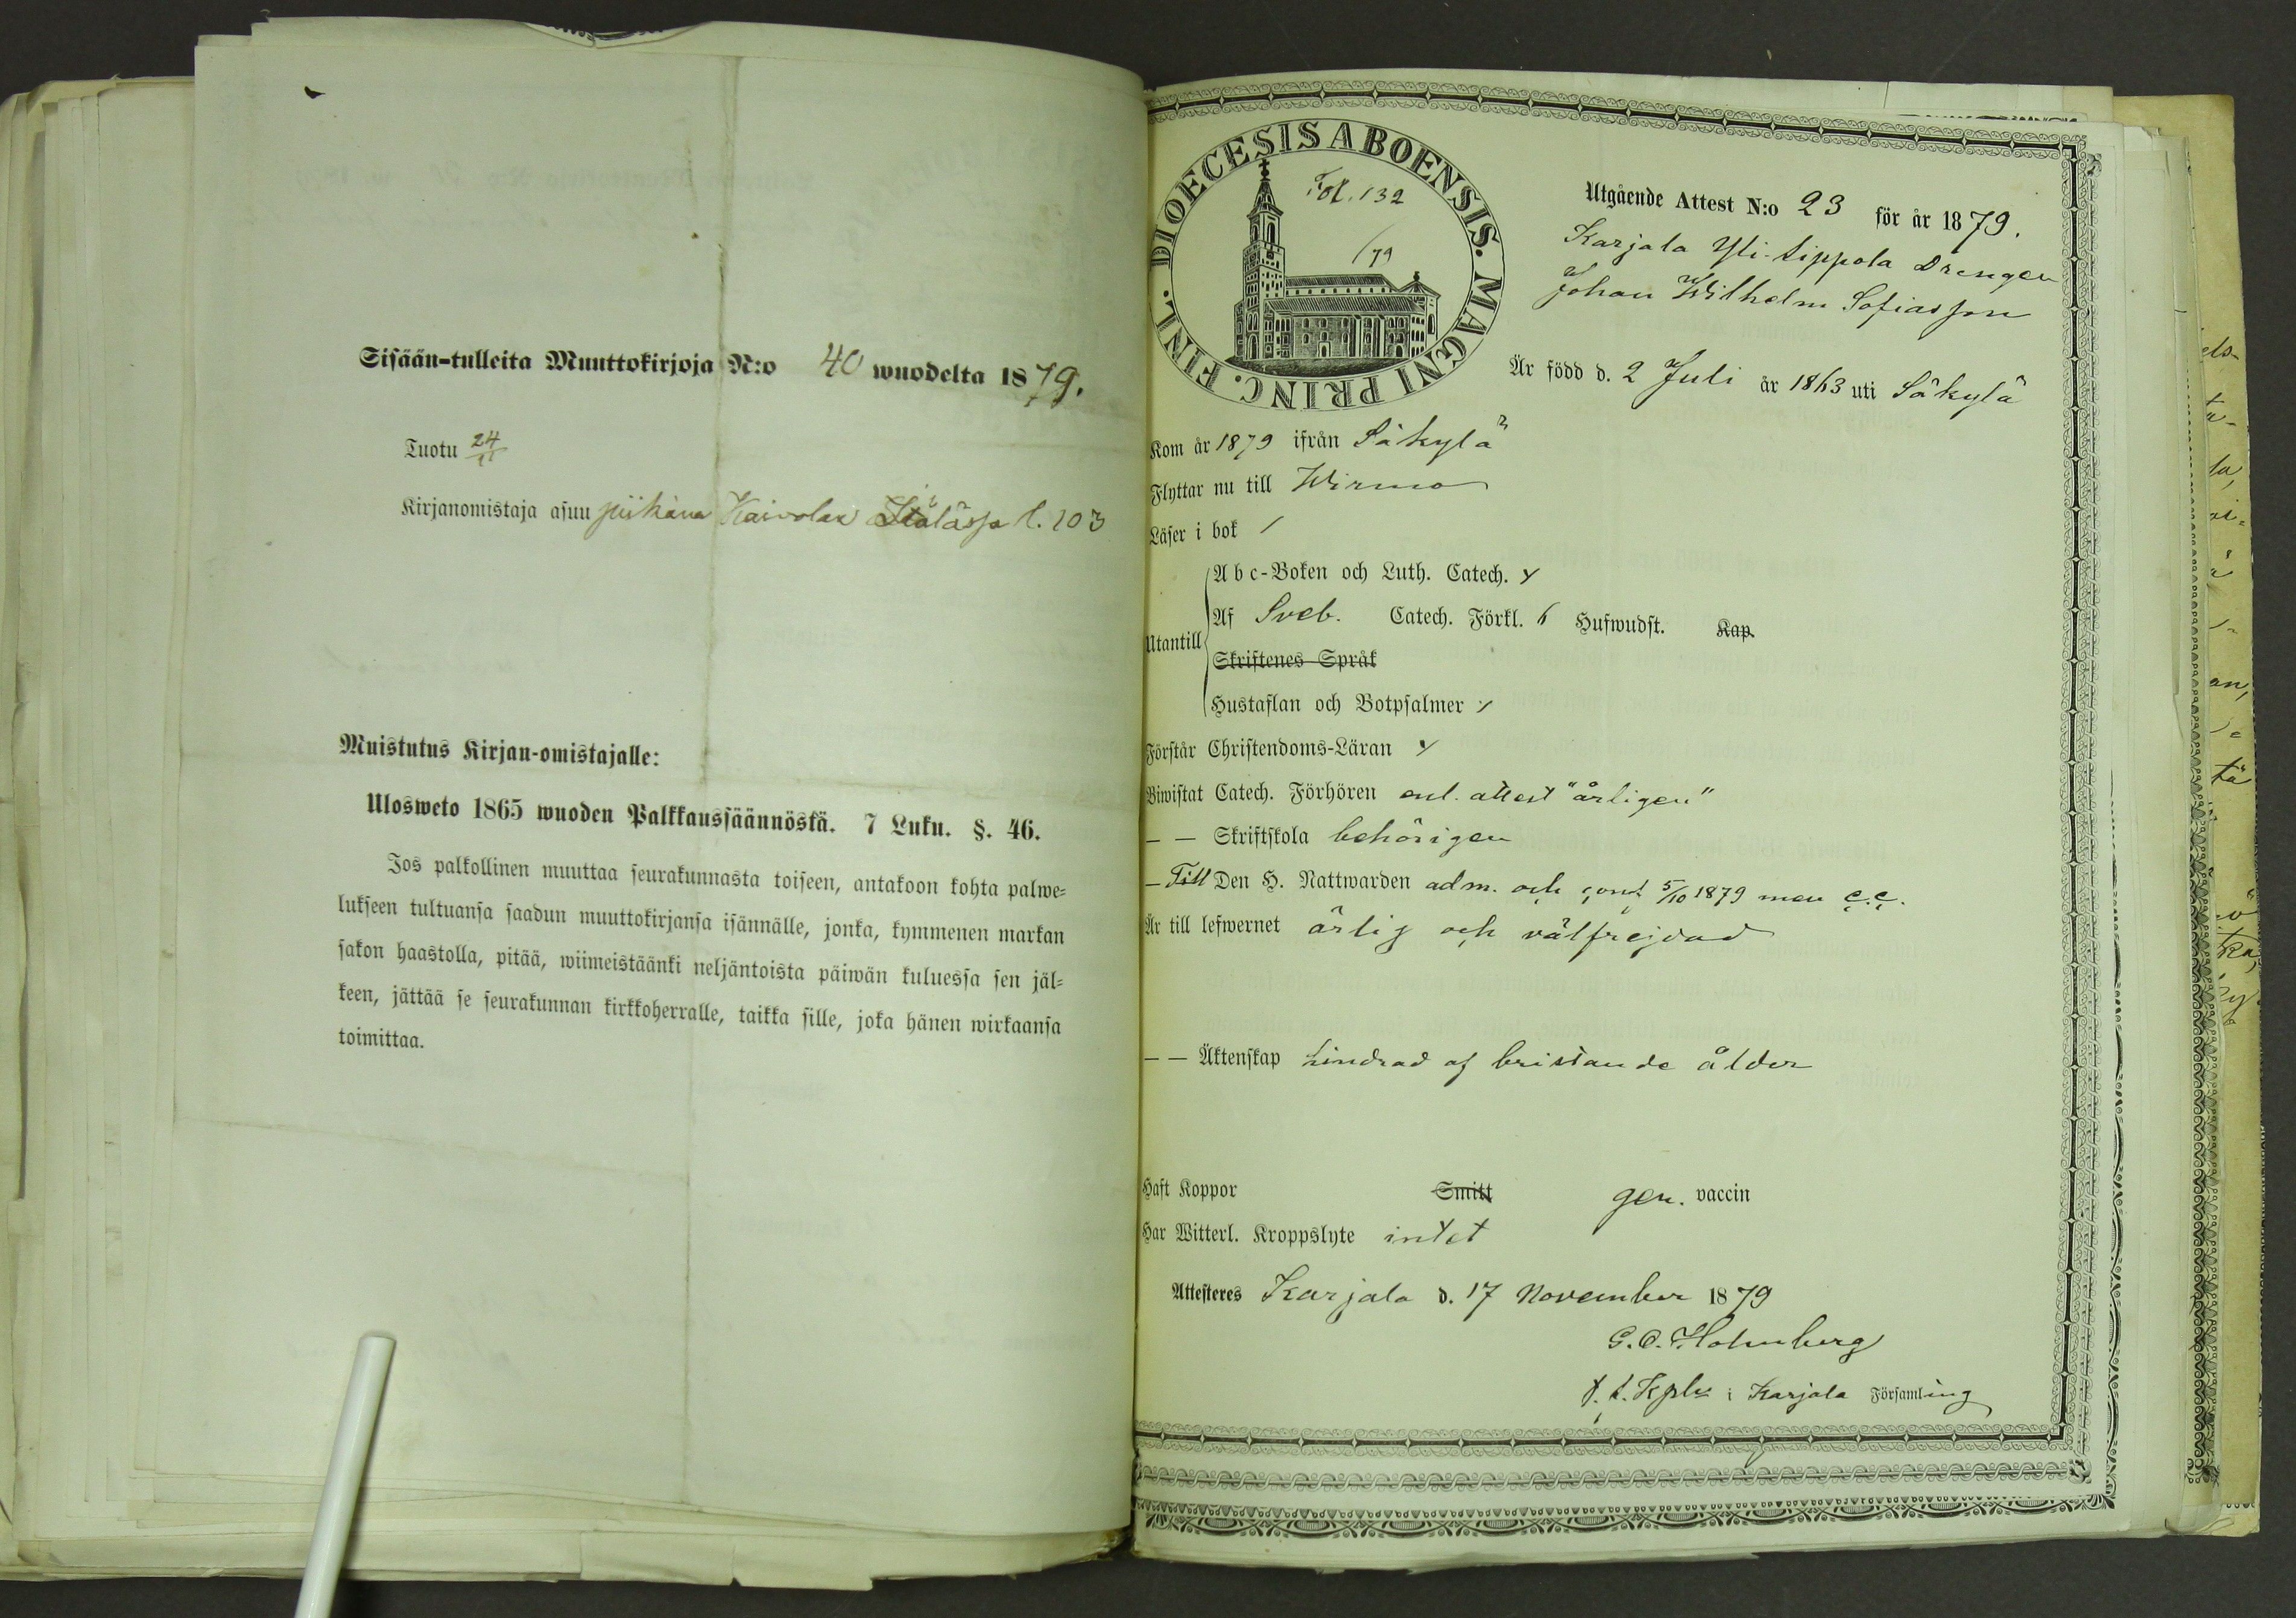 Sisään-tulleita Muuttokirjoja N:o 40 wuodelta 1879.
Tuotu 24/11
Kirjanomistaja asuu piikana Kaivolan l. 103
Muistutus Kirjan-omistajalle:
Ulosweto 1865 wuoden Palkkaussäännöstä. 7 Luku. §. 46.
Jos palkollinen muuttaa seurakunnasta toiseen, antakoon kohta palwe-
lukseen tultuansa saadun muuttokirjansa isännälle, jonka, kymmenen markan
sakon haastolla, pitää, wiimeistäänki neljäntoista päiwän kuluessa sen jäl-
keen, jättää se seurakunnan kirkkoherralle, taikka sille, joka hänen wirkaansa
toimittaa.
DIOECESIS ABOENSIS. MAGNI PRINC. FINL.
Fol. 132
/79
Utgående Attest N:o 23 för år 1879.
Karjala Yli-Lippola Drengen
Johan Wilhelm Sofiasson
Är född d. 2 Juli år 1863 uti Säkylä
Kom år 1879 ifrån Säkylä
Flyttar nu till Wirmo
Läser i bok /
Utantill
A b c-Boken och Luth. Catech. y
Af Sveb. Catech. Förkl. 6 Hufwudst. Kap.
Skriftenes Språk
Hustaflan och Botpsalmer y
Förstår Christendoms-Läran y
Biwistat Catech. Förhören enl. attest "årligen"
— — Skriftskola behörigen
— Till Den H. Nattwarden adm. och conf. 5/10 1879 men c.c.
Är till lefwernet ärlig och välfrejdad
— — Äktenskap hindrad af bristande ålder
Haft Koppor Smitt gen. vaccin
Har Witterl. Kroppslyte intet
Attesteres Karjala d. 17 November 1879
G. O. Holmberg
t. Kpln i Karjala Församling